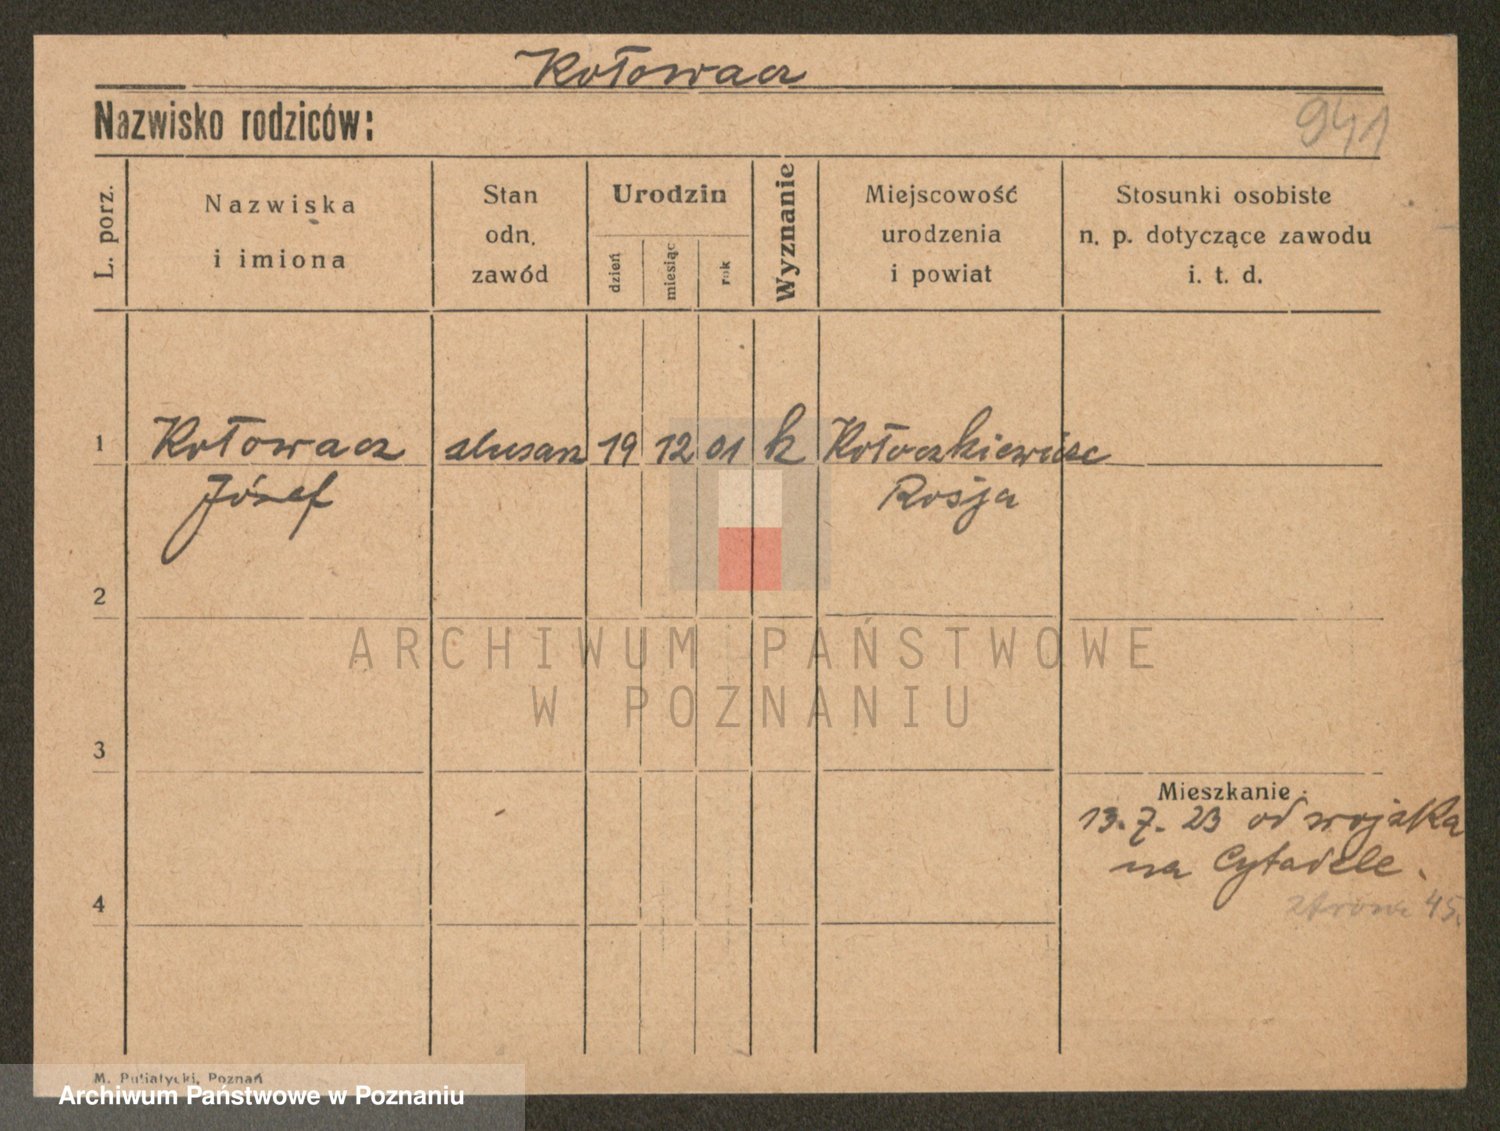 Kołowacz
Nazwisko rodziców:
941
L. porz.
Nazwiska
i imiona
Stan
odn.
zawód
Urodzin
dzień
miesiąc
rok
Wyznanie
Miejscowość
urodzenia
i powiat
Stosunki osobiste
n. p. dotyczące zawodu
i. t. d.
1 Kołowacz 19 12 01 k
Józef Rosja
2
ARCHIWUM PAŃSTWOWE
W POZNANIU
3
Mieszkanie:
13. 7. 23 od wojska
na Cytadele.
4
45.
M. Putiatycki, Poznań
Archiwum Państwowe w Poznaniu